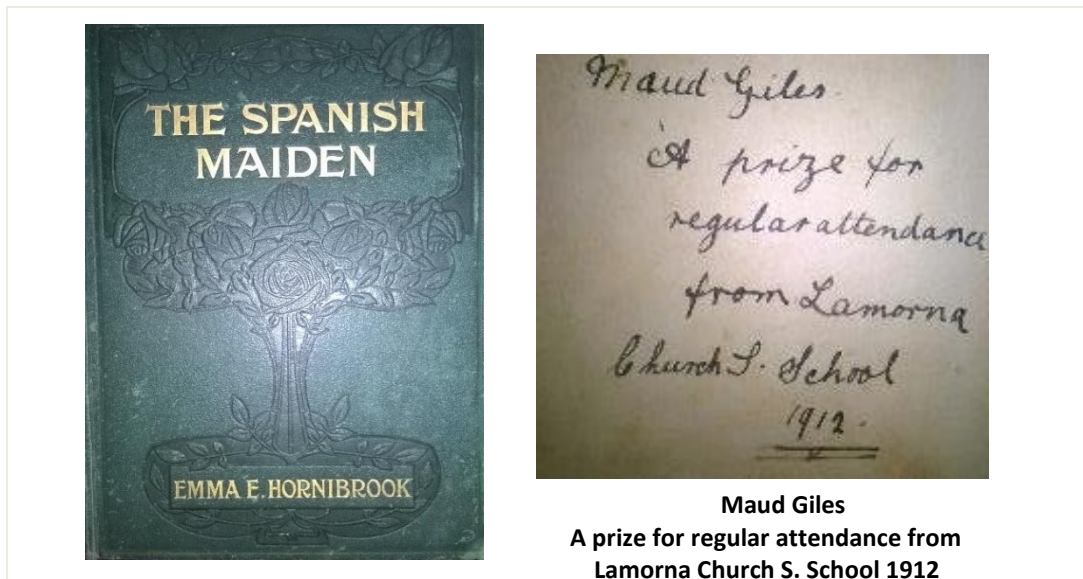 THE SPANISH
MAIDEN
EMMA E. HORNIBROOK
Maud Giles.
A prize for
regular attendance
from Lamorna
Church S. School
1912.
Maud Giles
A prize for regular attendance from
Lamorna Church S. School 1912